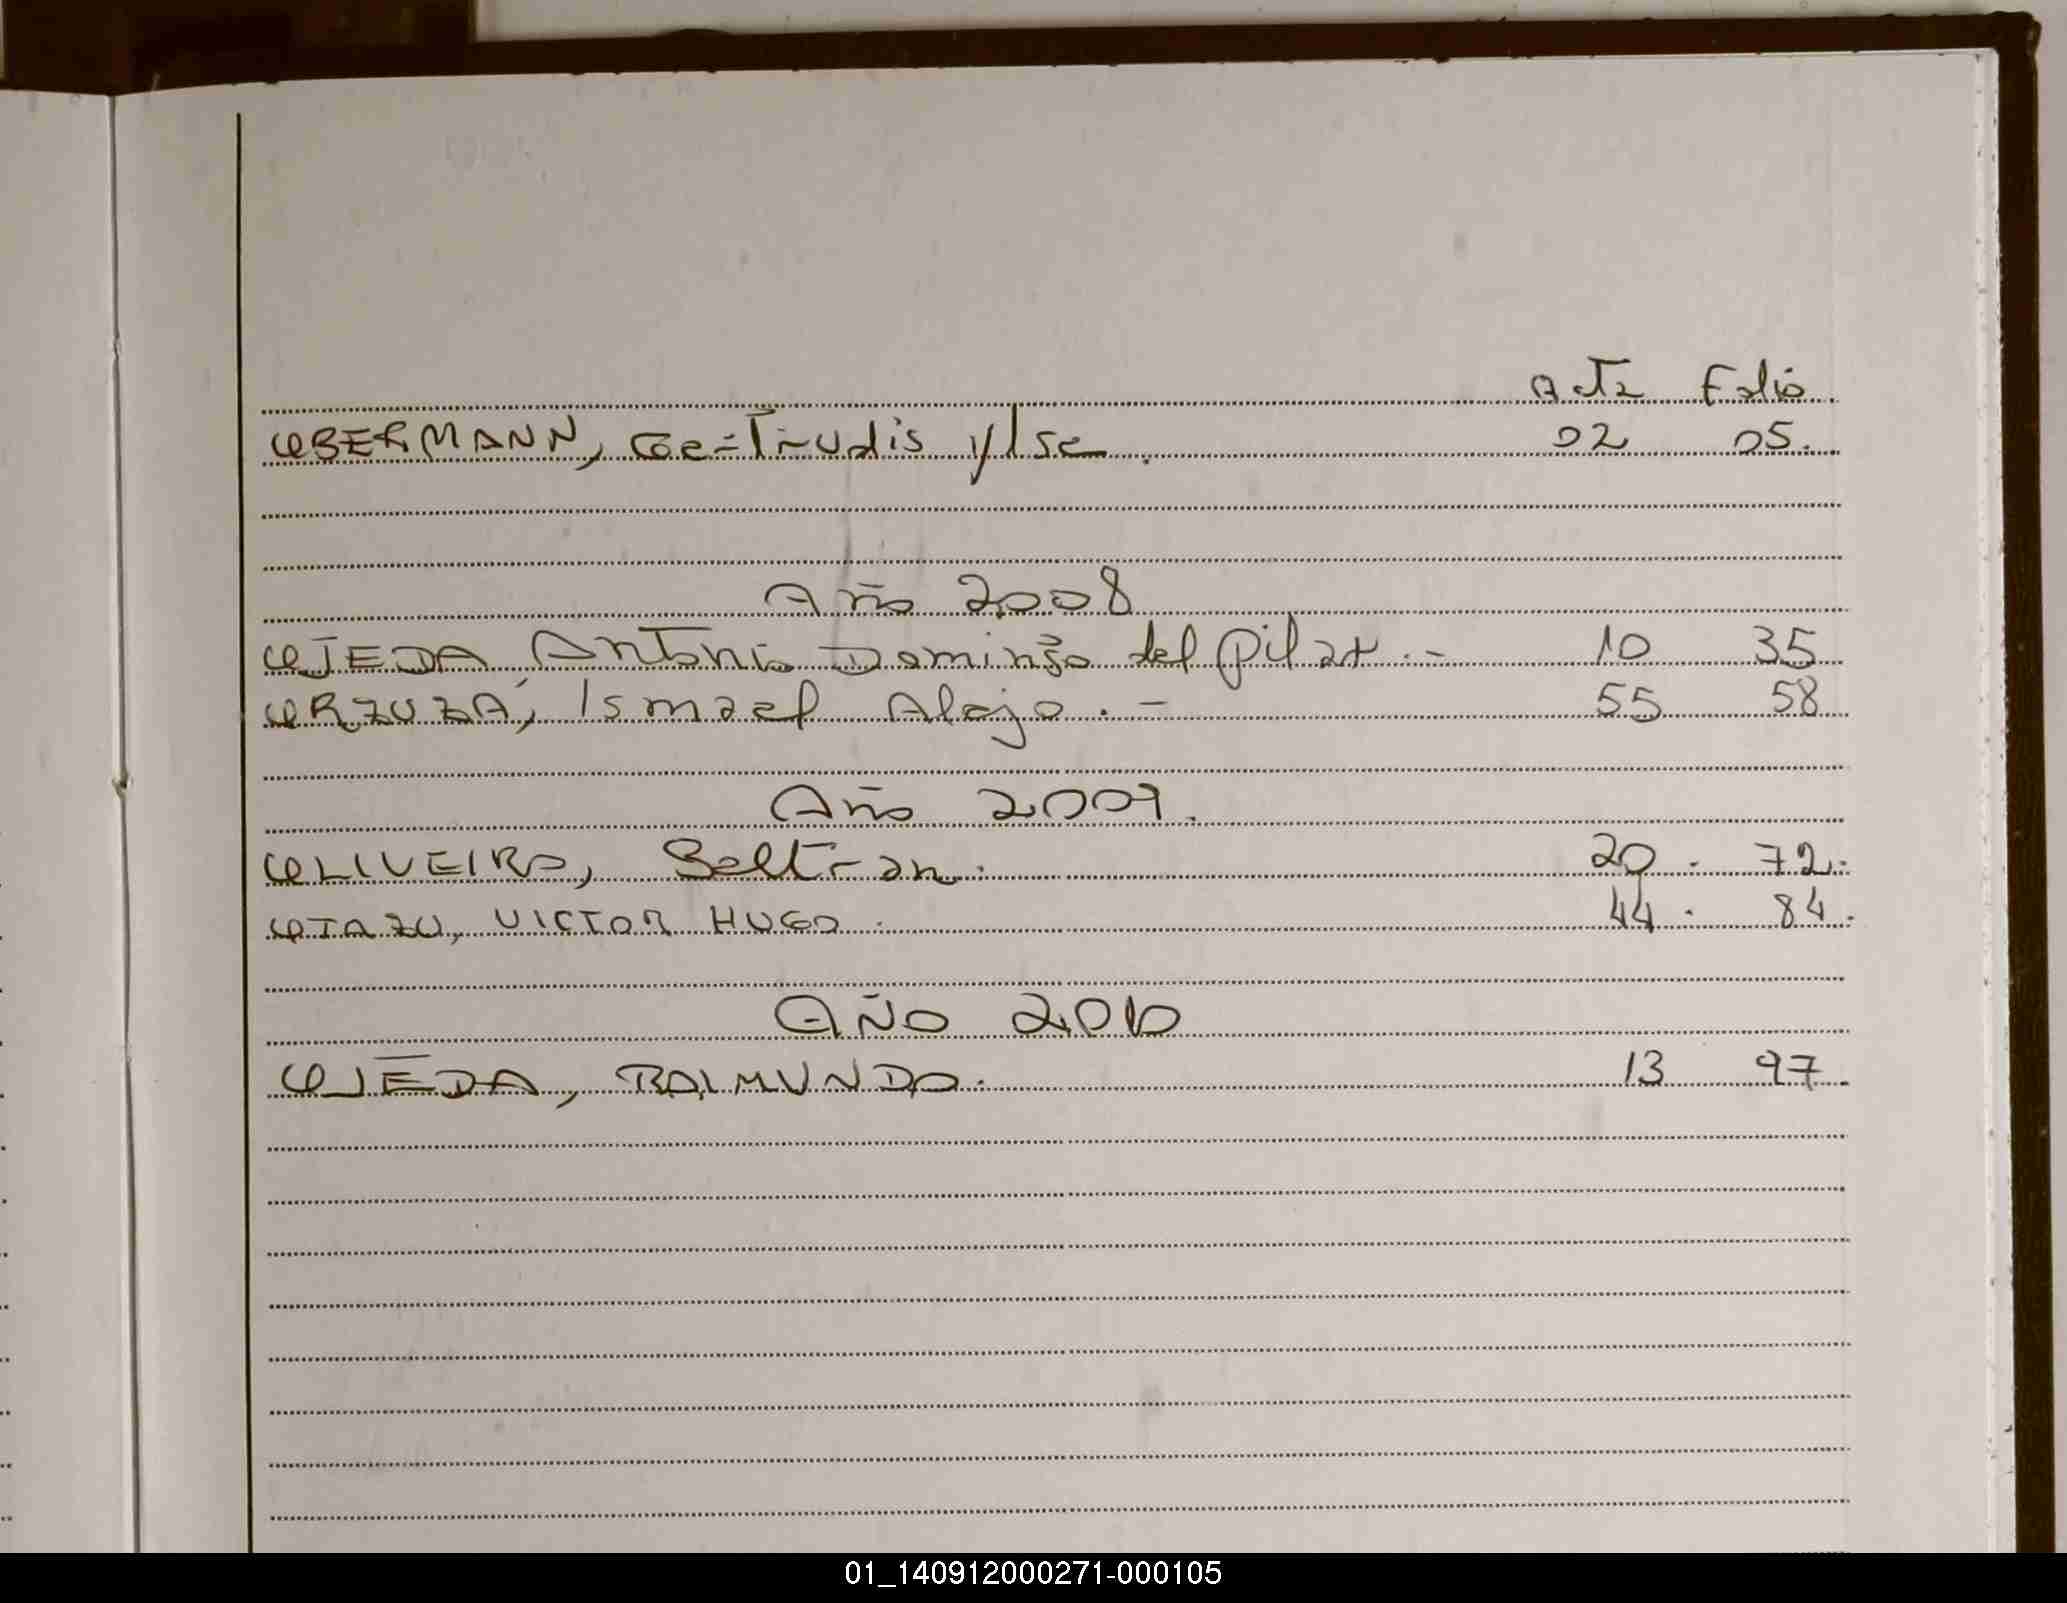 Acta Folio
OBERMANN, Gertrudis Ylse. 02 05.
Año 2008
OJEDA Antonio Domingo del Pilar.- 10 35
ORZUZA, Ismael Alejo.- 55 58
Año 2009.
OLIVEIRO, Beltran. 20. 72.
OTAZU, VICTOR HUGO. 44. 84.
AÑO 2010
OJEDA, RAIMUNDO. 13 97.
01_140912000271-000105